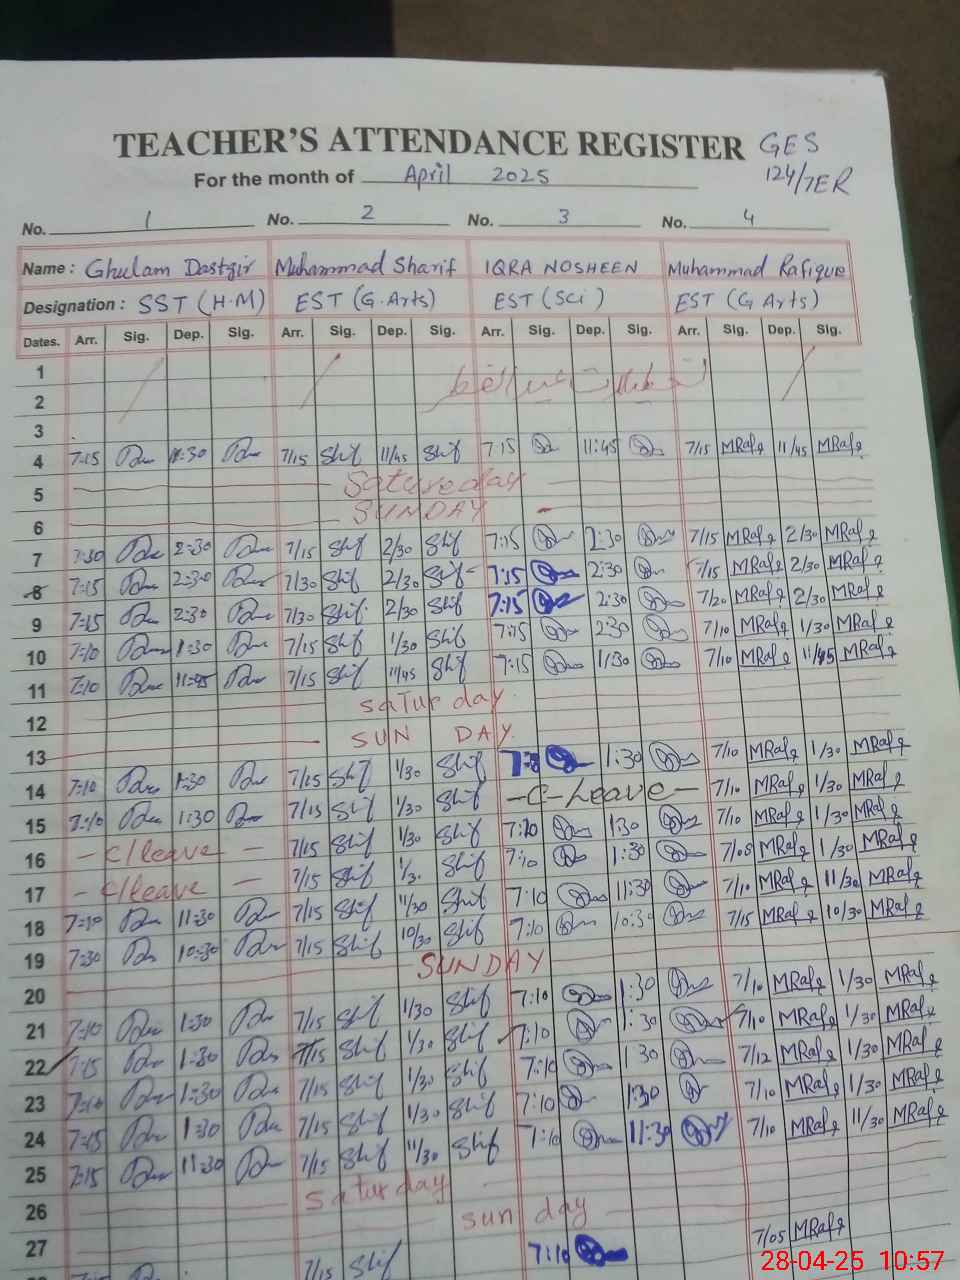 TEACHER'S ATTENDANCE REGISTER GES
For the month of April 2025 124/7ER
No. 1 No. 2 No. 3 No. 4
Name : Ghulam Dastgir Muhammad Sharif IQRA NOSHEEN Muhammad Rafique
Designation : SST (H.M) EST (G.Arts) EST (Sci) EST (G Arts)
Dates. Arr. Sig. Dep. Sig. Arr. Sig. Dep. Sig. Arr. Sig. Dep. Sig. Arr. Sig. Dep. Sig.
1
2
3
4 7:15 11:30 7/15 Shif 11/45 Shif 7:15 11:45 7/15 MRafq 11/45 MRafq
5 Satureday
6 SUNDAY
7 7:30 2:30 7/15 Shif 2/30 Shif 7:15 2:30 7/15 MRafq 2/30 MRafq
8 7:15 2:30 7/30 Shif 2/30 Shif 7:15 2:30 7/15 MRafq 2/30 MRafq
9 7:15 2:30 7/30 Shif 2/30 Shif 7:15 2:30 7/20 MRafq 2/30 MRafq
10 7:10 1:30 7/15 Shif 1/30 Shif 7:15 2:30 7/10 MRafq 1/30 MRafq
11 7:10 11:45 7/15 Shif 11/45 Shif 7:15 11:30 7/10 MRafq 11/45 MRafq
12 saTurday
13 SUN DAY.
14 7:10 1:30 7/15 Shif 1/30 Shif 1:30 7/10 MRafq 1/30 MRafq
15 7:10 1:30 7/15 Shif 1/30 Shif - C-Leave - 7/10 MRafq 1/30 MRafq
16 - C/leave - 7/15 Shif 1/30 Shif 7:10 1:30 7/10 MRafq 1/30 MRafq
17 - C/leave - 7/15 Shif 1/30 Shif 7:10 1:30 7/08 MRafq 1/30 MRafq
18 7:10 11:30 7/15 Shif 11/30 Shif 7:10 11:30 7/10 MRafq 11/30 MRafq
19 7:30 10:30 7/15 Shif 10/30 Shif 7:10 10:30 7/15 MRafq 10/30 MRafq
20 SUNDAY
21 7:10 1:30 7/15 Shif 1/30 Shif 7:10 1:30 7/10 MRafq 1/30 MRafq
22 7:15 1:30 7/15 Shif 1/30 Shif 7:10 1:30 7/10 MRafq 1/30 MRafq
23 7:10 1:30 7/15 Shif 1/30 Shif 7:10 1:30 7/12 MRafq 1/30 MRafq
24 7:15 1:30 7/15 Shif 1/30 Shif 7:10 1:30 7/10 MRafq 1/30 MRafq
25 7:15 11:30 7/15 Shif 11/30 Shif 7:10 11:30 7/10 MRafq 11/30 MRafq
26 Saturday
27 sun day
7/15 Shif 7:10 7/05 MRafq
28-04-25 10:57